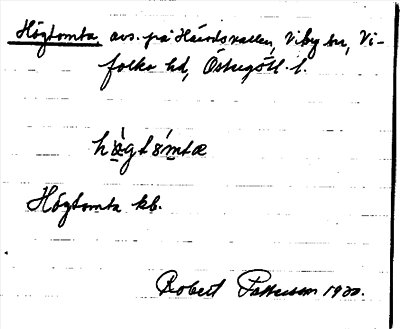 Högtomta, avs. på Häradsvallen, Viby sn, Vi-
folka hd, Östergötl. l.
hö̀gtómtæ
Högtomta kb.
Robert Pettersson 1920.